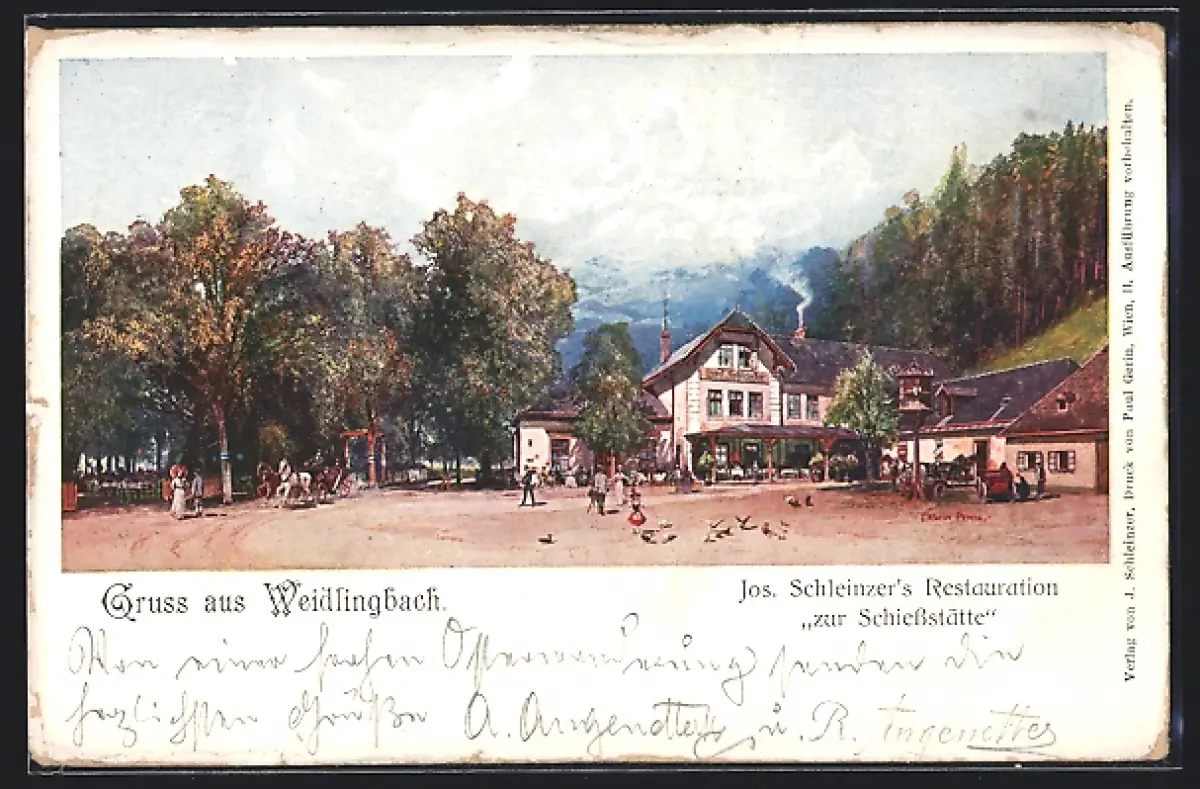 Gruss aus Weidlingbach.
Jos. Schleinzer's Restauration
„zur Schießstätte“
Von einer frohen Osterwanderung senden die
herzlichsten Grüße A. Angenetter u. R. Angenetter
Verlag von J. Schleinzer, Druck von Paul Gerin, Wien, II. Ausführung vorbehalten.